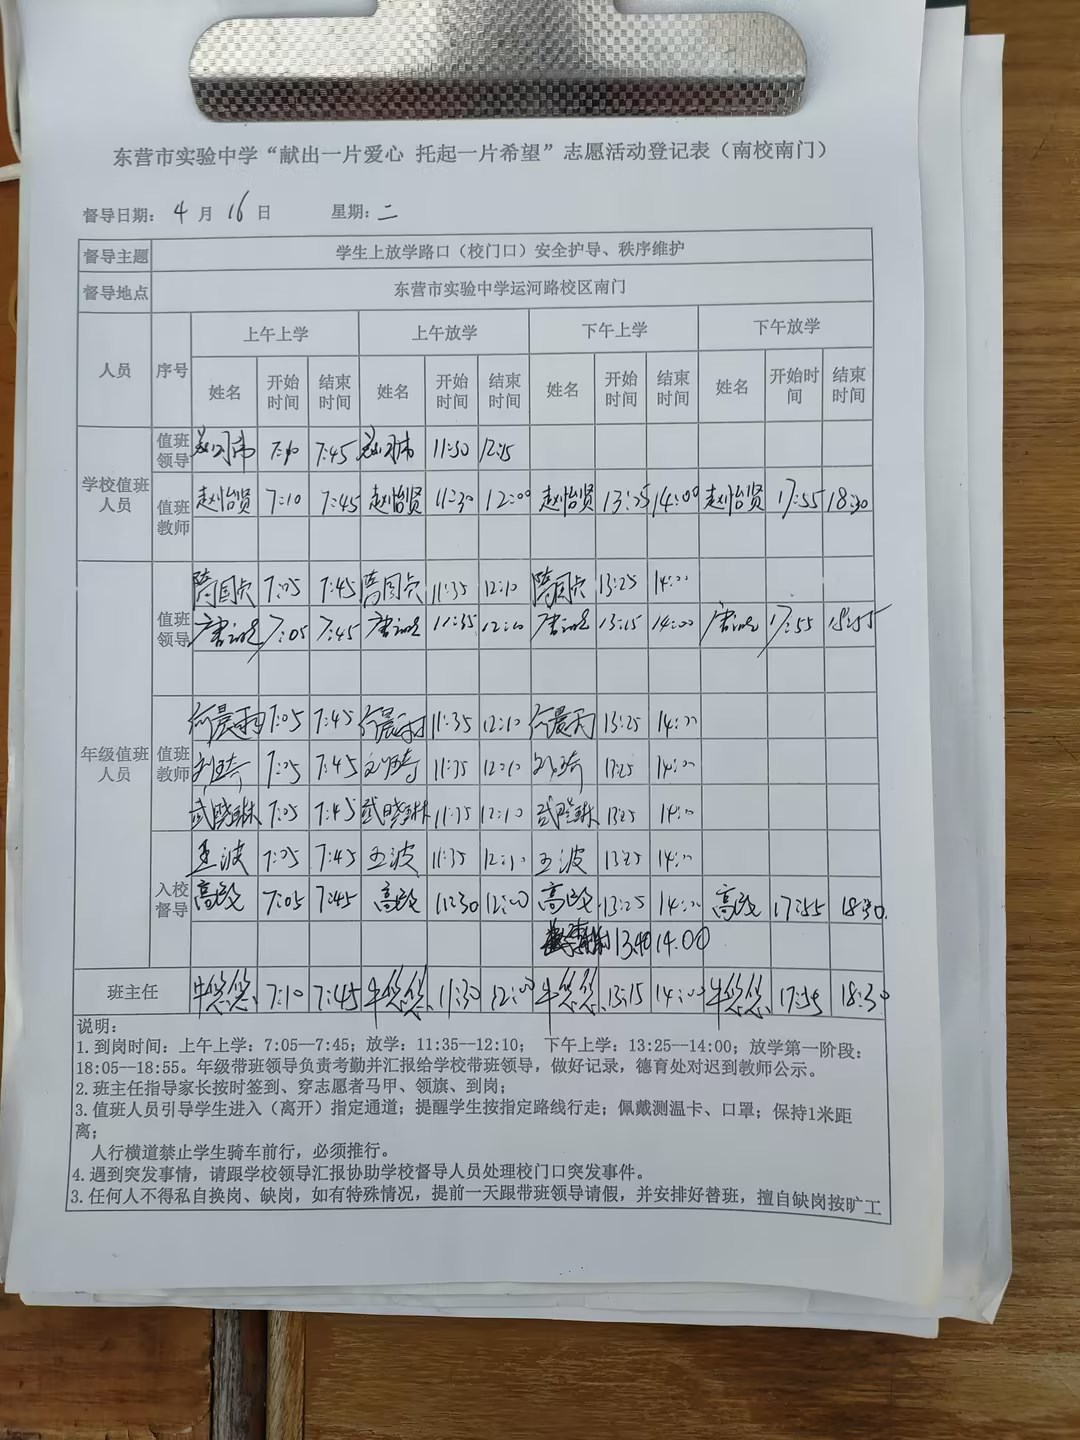 东营市实验中学“献出一片爱心 托起一片希望”志愿活动登记表（南校南门）
督导日期： 4 月 16 日 星期：二
督导主题 学生上放学路口（校门口）安全护导、秩序维护
督导地点 东营市实验中学运河路校区南门
人员 序号 上午上学 上午放学 下午上学 下午放学
姓名 开始时间 结束时间 姓名 开始时间 结束时间 姓名 开始时间 结束时间 姓名 开始时间 结束时间
学校值班人员
值班领导 7:45 11:30
值班教师 赵怡贤 7:10 7:45 赵怡贤 11:30 12:00 赵怡贤 13:25 14:00 赵怡贤 17:55 18:30
年级值班人员
值班领导 7:05 7:45 11:35 12:10 13:25 14:00
7:05 7:45 11:35 13:15 14:00 17:55
值班教师 何晨雨 7:05 7:45 何晨雨 11:35 12:10 何晨雨 13:25 14:00
刘琦 7:05 7:45 刘琦 11:35 12:10 刘琦 13:25 14:00
武晓琳 7:05 7:45 武晓琳 11:35 12:10 武晓琳 13:25 14:00
入校督导 王波 7:05 7:45 王波 11:35 12:10 王波 13:25 14:00
7:05 7:45 11:30 12:00 13:25 14:00 17:55 18:30
13:40 14:00
班主任 牛悠悠 7:10 7:45 牛悠悠 11:30 12:00 牛悠悠 13:15 14:00 牛悠悠 17:55 18:30
说明：
1. 到岗时间：上午上学：7:05—7:45；放学：11:35—12:10； 下午上学：13:25—14:00；放学第一阶段：
18:05—18:55。年级带班领导负责考勤并汇报给学校带班领导，做好记录，德育处对迟到教师公示。
2. 班主任指导家长按时签到、穿志愿者马甲、领旗、到岗；
3. 值班人员引导学生进入（离开）指定通道；提醒学生按指定路线行走；佩戴测温卡、口罩；保持1米距
离；
人行横道禁止学生骑车前行，必须推行。
4. 遇到突发事情，请跟学校领导汇报协助学校督导人员处理校门口突发事件。
3. 任何人不得私自换岗、缺岗，如有特殊情况，提前一天跟带班领导请假，并安排好替班，擅自缺岗按旷工